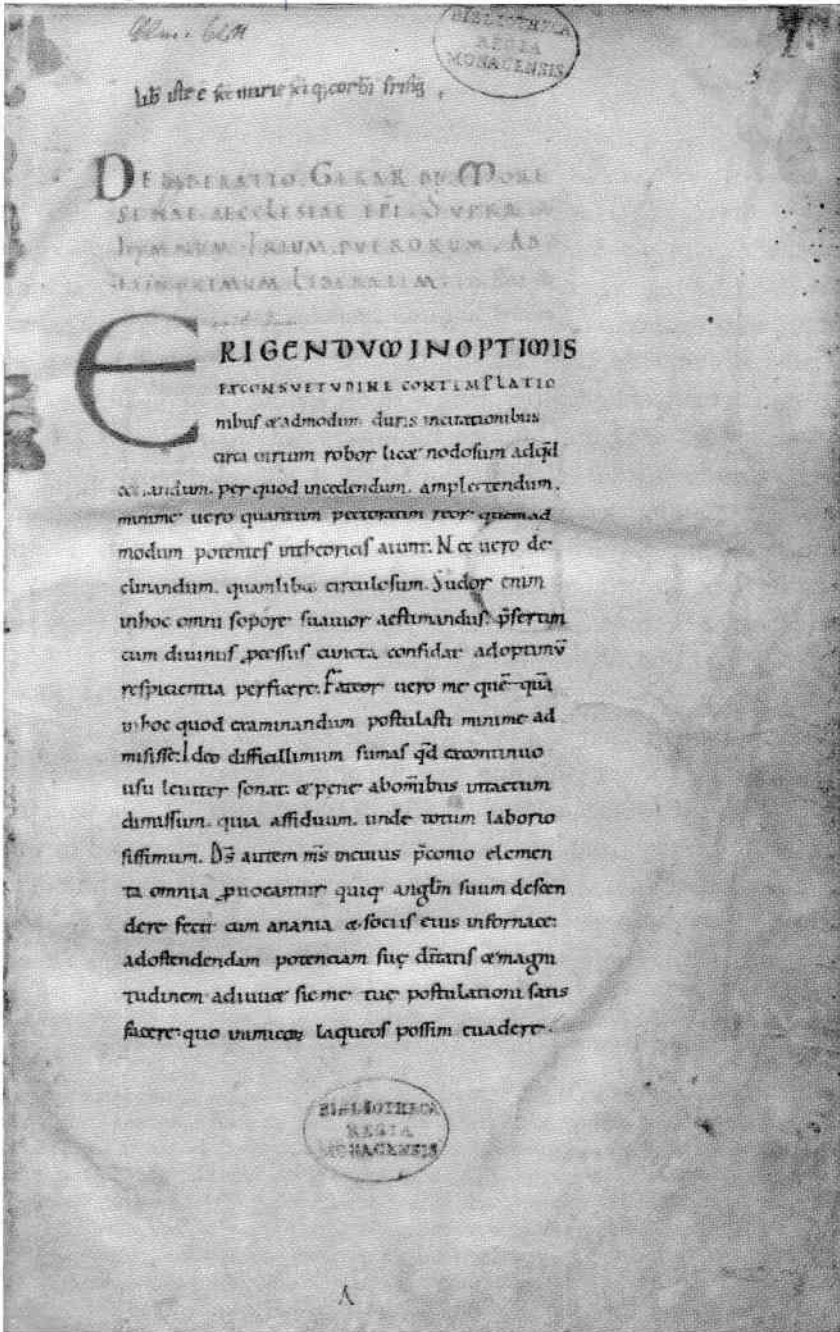 Clm. 6211
BIBLIOTHECA
REGIA
MONACENSIS
lib̄ iste ē sce marie sci q; corb̄i frisīg
DELIBERATIO. GERARDI MORE
SENAE. AECCLESIAE EPI. SUPRA
HYMNUM. TRIUM. PUERORUM. AD
LIBERALEM
ERIGENDUM IN OPTIMIS
ET CONSVETVDINE CONTEMPLATIO
nibus & admodum duris incitationibus
circa uirium robor lic& nodosum ad qđ
per quod incedendum. amplectendum.
minime uero quantum reor quemad
modum potentes in theoricis aiunt. Nec uero de
clinandum. quamlib& circulosum. Sudor enim
in hoc omni sopore suauior aestimandus. p̄sertim
cum diuinus pcessus cuncta confidat ad optimū
respicientia perficere. Fateor uero me quē quā
in hoc quod examinandum postulasti minime ad
misisse. Ideo difficillimum sumas qđ ex continuo
usu leuiter sonat. & pene ab om̄ibus intactum
dimissum. quia assiduum. unde totum laborio
sissimum. Ds̄ autem ms̄ in cuius p̄conio elemen
ta omnia puocantur quiq; anglm̄ suum descen
dere fecit cum anania & sociis eius in fornace.
ad ostendendam potenciam suę diītatis & magni
tudinem adiuu& sic me tuę postulationi satis
facere quo inimicos laqueos possim euadere.
BIBLIOTHECA
REGIA
MONACENSIS